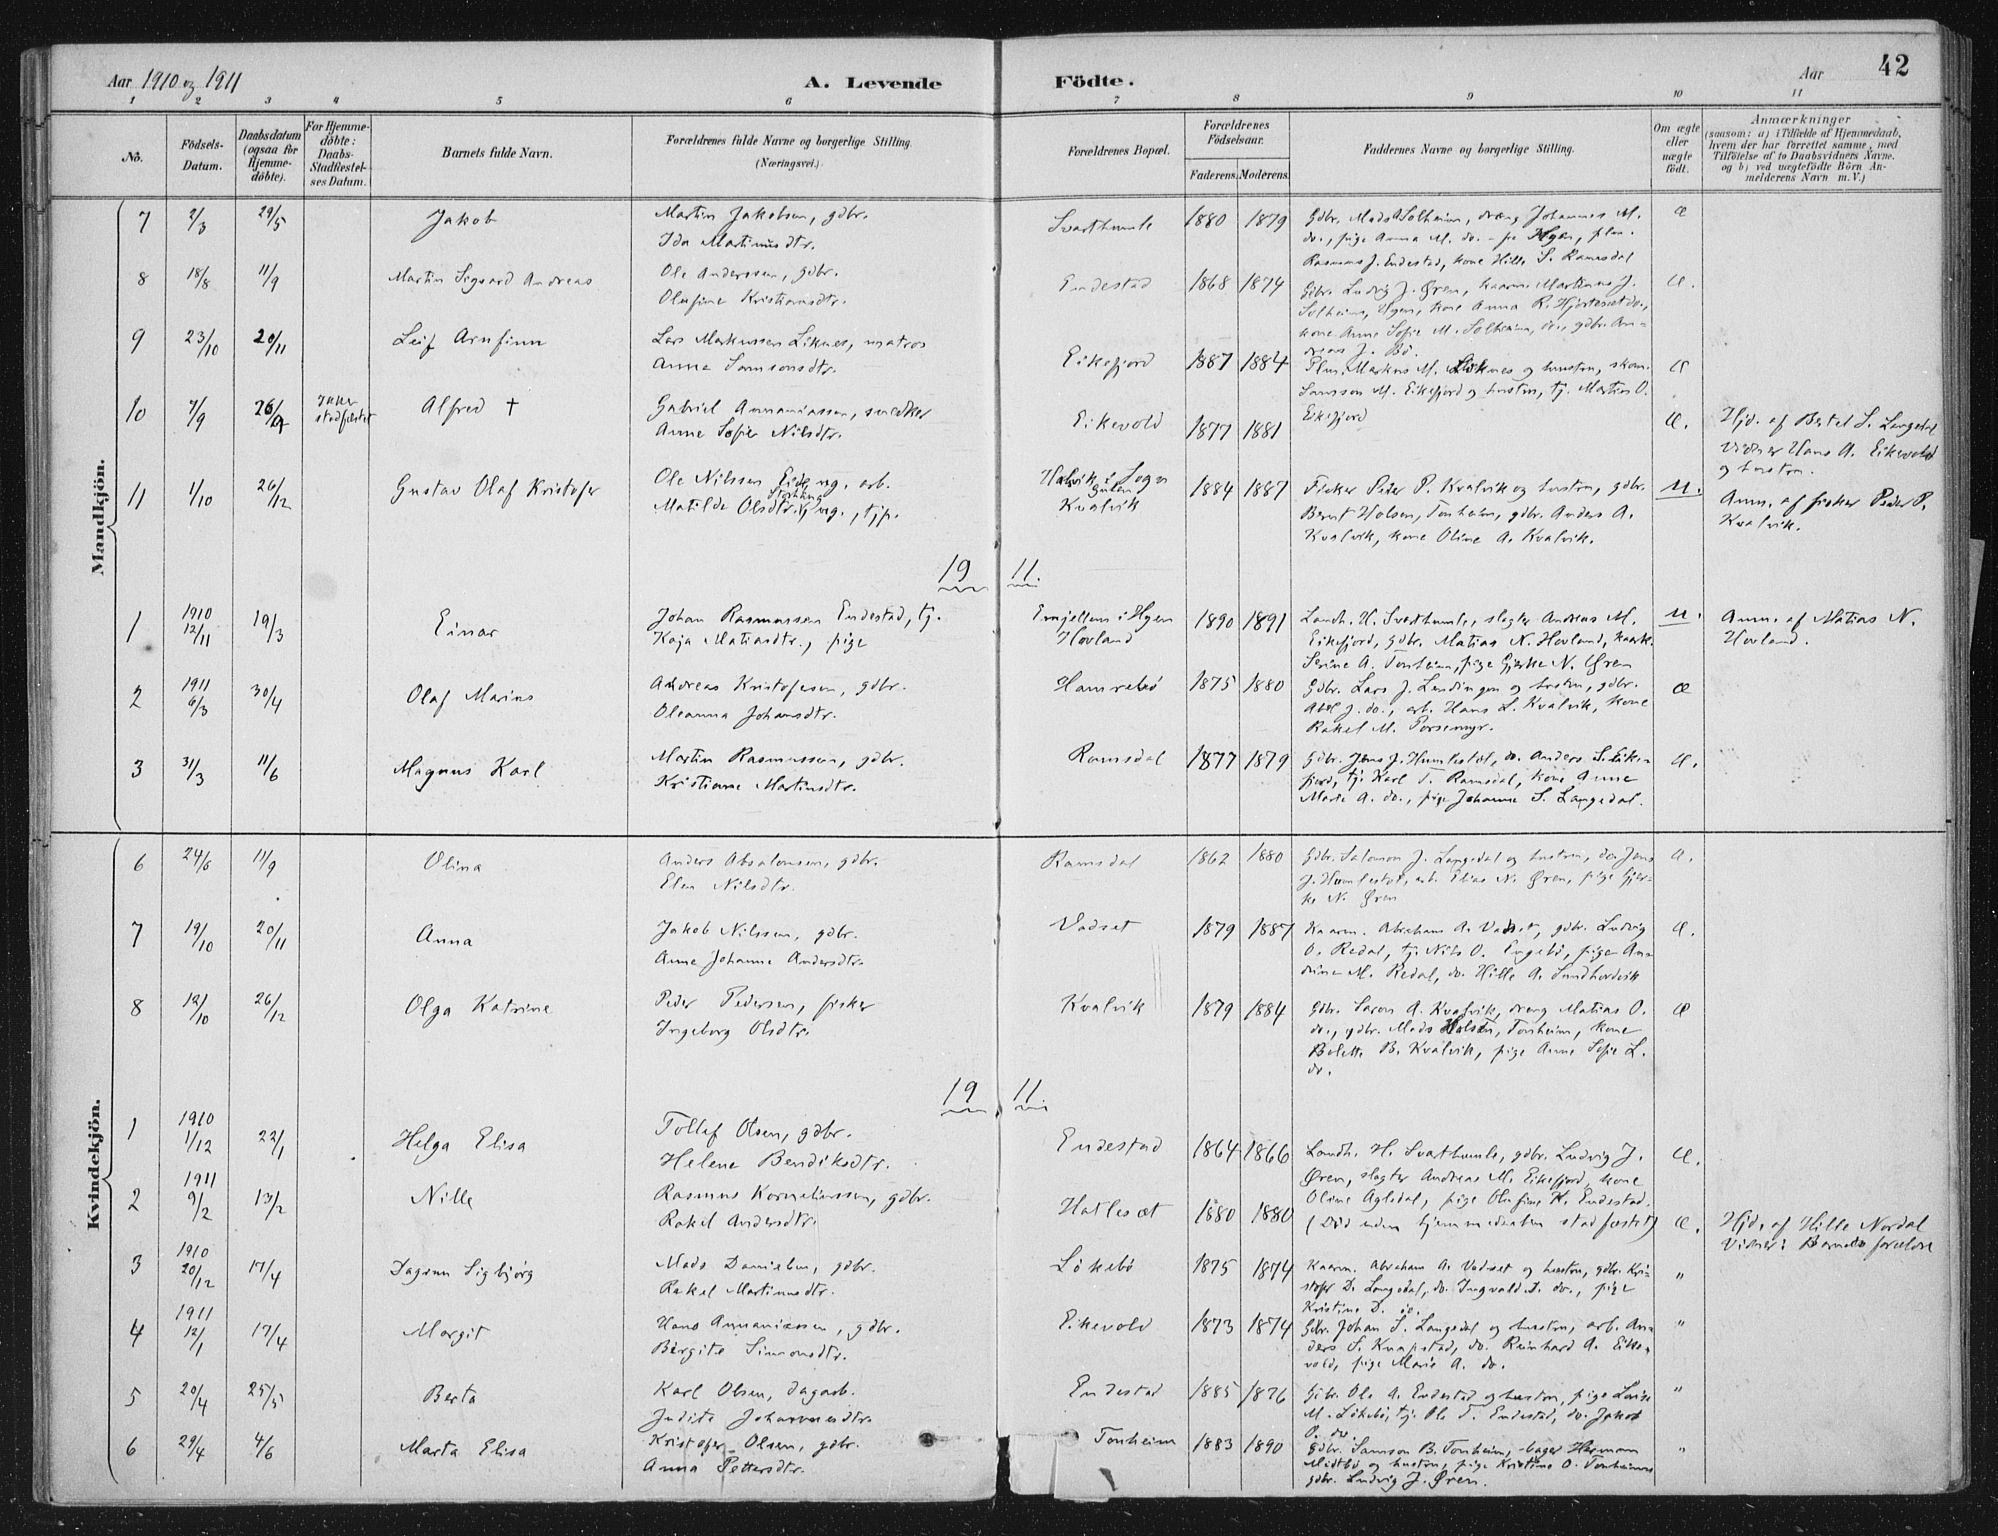 Aar 1910 og 1911
A. Levende
Födte.
Aar
42
1 2 3 4 5 6 7 8 9 10 11
No.
Födsels-Datum.
Daabsdatum (ogsaa for Hjemme-döbte).
For Hjemme-döbte: Daabs-Stadfæstel-ses Datum.
Barnets fulde Navn.
Forældrenes fulde Navne og borgerlige Stilling.
(Næringsvei.)
Forældrenes Bopæl.
Forældrenes Födselsaar.
Faderens. Moderens.
Faddernes Navne og borgerlige Stilling.
Om ægte eller uægte födt.
Anmærkninger
(saasom: a) i Tilfælde af Hjemmedaab, hvem der har forrettet samme, med Tilföielse af to Daabsvidners Navne, og b) ved uægtefödte Börn An-melderens Navn m. V.)
Mandkjön.
7 2/3 29/5 Jakob Martin Jakobsen, gdbr. Svarthumle 1880 1879 Gdbr. Mads Solheim, dreng Johannes M. æ
Ida Martinusdtr. do., pige Anna M. do.
Rasmus J. Endestad, kone Hille S. Ramsdal
8 18/8 11/9 Martin Sigvard Andreas Ole Anderssen, gdbr. Endestad 1868 1874 Gdbr. Ludvig J. Øren, kaarm. Martinus J. æ.
Olufine Kristiansdtr. Solheim, Hgen, kone Anna R. Hjortesæt do.,
kone Anne Sofie M. Solheim, do., gdbr. An-
dreas J. Bö.
9 23/10 20/11 Leif Arnfinn Lars Markussen Liknes, matros Eikefjord 1887 1884 Plm. Markus M. Liknes og hustru, skom. æ
Anna Samsonsdtr. Samson M. Eikefjord og hustru, tj. Martin O.
Eikefjord
10 7/9 26/9 Ikke stadfæstet Alfred † Gabriel Annaniassen, snedker Eikevold 1877 1881 æ. Hjd. af Bertel S. Langedal
Anne Sofie Nilsdtr. Vidner Hans A. Eikevold
og hustru.
11 1/10 26/12 Gustav Olaf Kristofer Ole Nilssen Eide, ug. arb. i Sogn 1884 1887 Fisker Peder P. Kvalvik og hustru, gdbr. u. Anm. af fisker Peder P.
Matilde Olsdtr. ug., tjp. Kvalvik Bernt Holsen, Tonheim, gdbr. Anders A. Kvalvik.
Kvalvik, kone Oline A. Kvalvik.
1911.
1 1910 12/11 19/3 Einar Johan Rasmussen Endestad, tj. Emjellem i Hgen 1890 1891 Landh. H. Svarthumle, slagter Andreas M. u. Anm. af Matias N.
Kaja Matiasdtr., pige Hovland Eikefjord, gdbr. Matias N. Hovland, kaark. Hovland.
Serine A. Tonheim, pige Gjerke N. Øren
2 1911 6/3 30/4 Olaf Marius Andreas Kristofersen, gdbr. Hamrebö 1875 1880 Gdbr. Lars J. Lendingen og hustru, gdbr. æ
Oleanna Johansdtr. Abel J. do., arb. Hans L. Kvalvik, kone
Rakel M. Porsemyr.
3 31/3 11/6 Magnus Karl Martin Rasmussen, gdbr. Ramsdal 1877 1879 Gdbr. Jens J. Humlestöl, do. Anders S. Eike- æ.
Kristianne Martinsdtr. fjord, tj. Karl T. Ramsdal, kone Anne
Marie A. do., pige Johanne S. Langedal.
Kvindekjön.
6 24/6 11/9 Olina Anders Absalonsen, gdbr. Ramsdal 1862 1880 Gdbr. Salomon J. Langedal og hustru, do. Jens æ.
Elen Nilsdtr. J. Humlestöl, arb. Elias N. Øren, pige Gjer-
ke N. Øren
7 19/10 20/11 Anna Jakob Nilssen, gdbr. Vadset 1879 1887 Kaarm. Abraham A. Vadset, gdbr. Ludvig æ.
Anne Johanne Andersdtr. O. Redal, tj. Nils O. Engebö, pige An-
drine M. Redal, do. Hille A. Sundhordvik
8 12/10 26/12 Olga Katrine Peder Pedersen, fisker Kvalvik 1879 1884 Gdbr. Saron A. Kvalvik, dreng Matias O. æ
Ingeborg Olsdtr. do., gdbr. Mads Holsen, Tonheim, kone
Bolette B. Kvalvik, pige Anne Sofie L.
do.
1911.
1 1910 1/12 22/1 Helga Elisa Tollef Olsen, gdbr. Endestad 1864 1866 Landh. H. Svarthumle, gdbr. Ludvig J. æ.
Helene Bendiksdtr. Øren, slagter Andreas M. Eikefjord, kone
Oline Agledal, pige Olufine K. Endestad.
2 1911 9/2 13/2 Nille Rasmus Korneliussen, gdbr. Hatlesæt 1880 1880 (Död uden hjemmedaaben stadfæstet) æ. Hjd. af Hille Nordal
Rakel Andersdtr. Vidner: Barnets forældre
3 1910 20/12 17/4 Dagrun Sigbjörg Mads Danielsen, gdbr. Lökebö 1875 1874 Kaarm. Abraham A. Vadset og hustru, gdbr. Kri- "
Rakel Martinusdtr. stofer D. Langedal, do. Ingvald D. do., pige
Kristine D. do.
4 1911 12/1 17/4 Margit Hans Annaniassen, gdbr. Eikevold 1873 1874 Gdbr. Johan S. Langedal og hustru, arb. An- "
Birgite Simonsdtr. ders S. Knapstad, do. Reinhard A. Eike-
vold, pige Marie A. do.
5 20/4 25/5 Berta Karl Olsen, dagarb. Endestad 1885 1876 Gdbr. Ole A. Endestad og hustru, pige Lovise "
Judite Johannesdtr. M. Lökebö, tj. Ole T. Endestad, do. Jakob
O. do.
6 29/4 4/6 Marta Elisa Kristofer Olsen, gdbr. Tonheim 1883 1890 Gdbr. Samson B. Tonheim, bager Herman "
Anna Pettersdtr. Midtbö og hustru, pige Kristine O. Tonheim,
gdbr. Ludvig J. Øren.